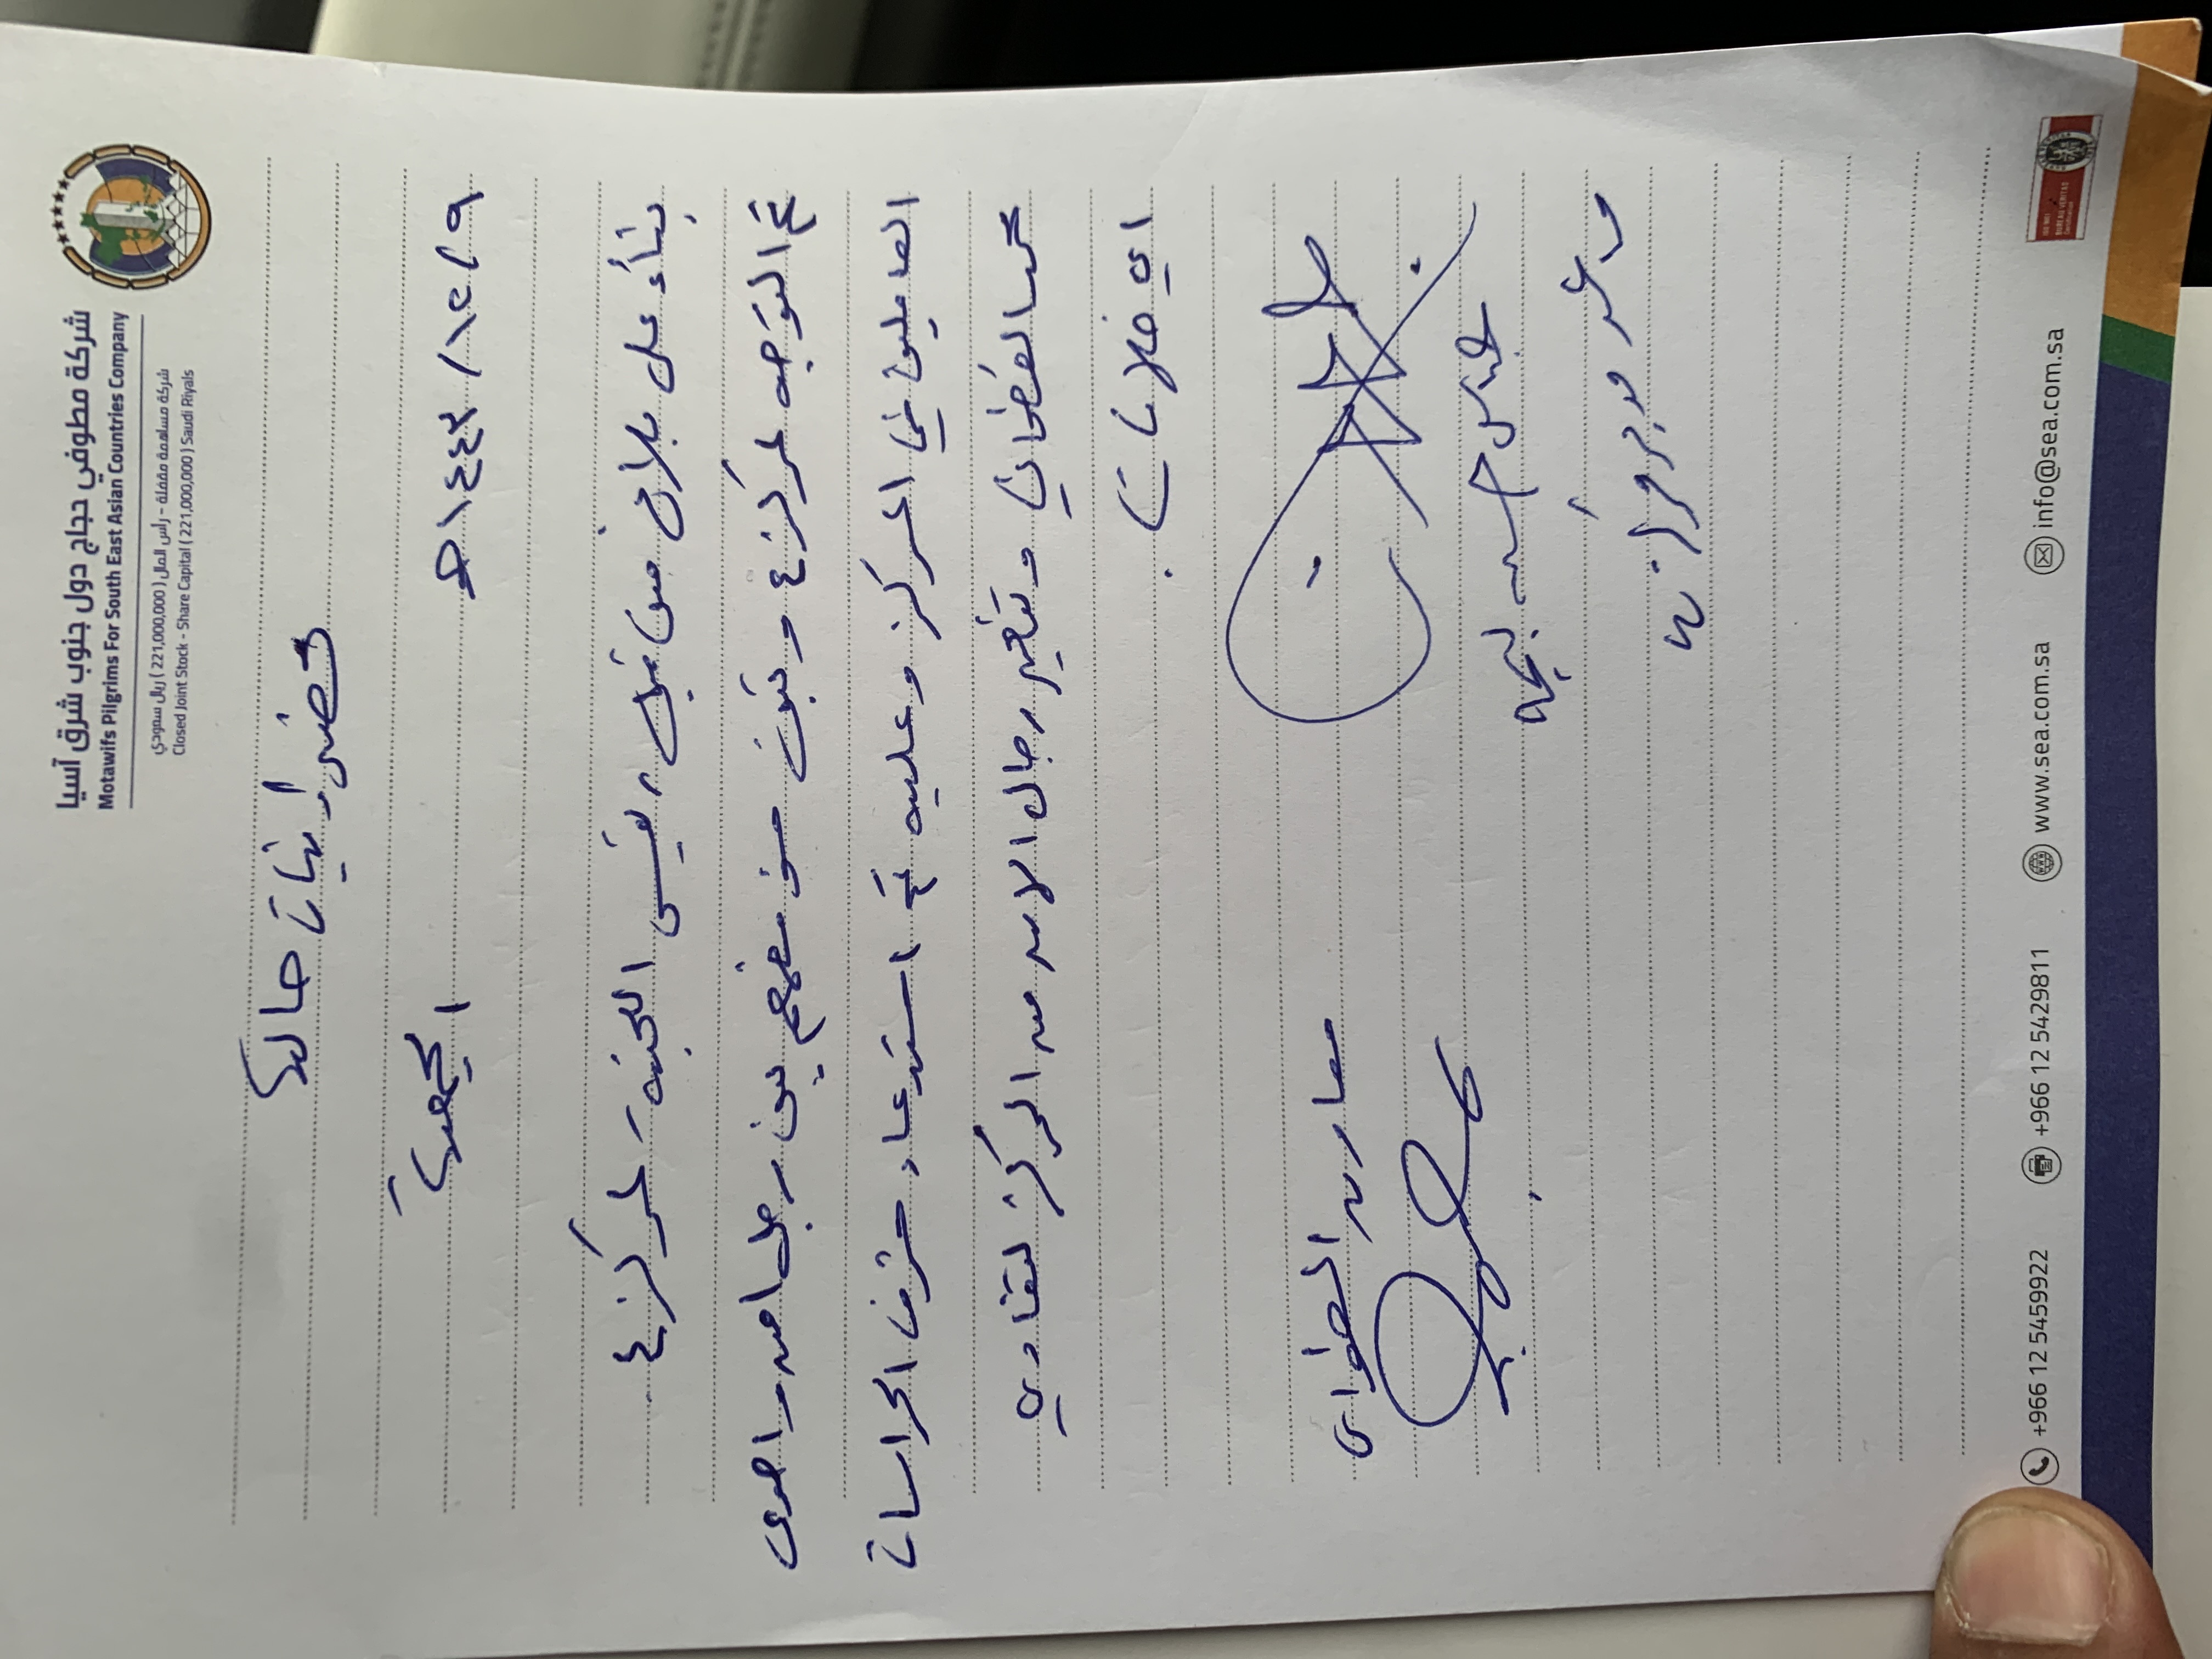 شركة مطوفي حجاج دول جنوب شرق آسيا
Motawifs Pilgrims For South East Asian Countries Company
شركة مساهمة مقفلة - رأس المال ( 221,000,000 ) ريال سعودي
Closed Joint Stock - Share Capital ( 221,000,000 ) Saudi Riyals
محضر إثبات حالة
٩ / ١٢ / ١٤٤٣هـ الجمعة
بناءً على بلاغ من قبل رئيس اللجنة لمركز ٤
تم التوجه لمركز ٤ وتبين سوء تفاهم بين رجل امن واحدى
العاملين في المركز وعليه تم استدعاء مشرف الحراسات
محمد القحطاني وتغيير رجال الامن من المركز لتفادي
اي خلافات .
عباس حسين
مساعد مدير مركز ٤
+966 12 5459922 +966 12 5429811 www.sea.com.sa info@sea.com.sa
BUREAU VERITAS
Certification